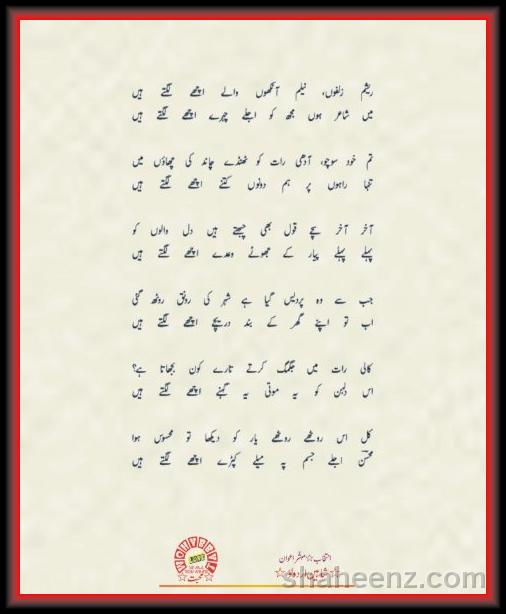 ریشم زلفوں، نیلم آنکھوں والے اچھے لگتے ہیں
میں شاعر ہوں مجھ کو اجلے چہرے اچھے لگتے ہیں
تم خود سوچو، آدھی رات کو ٹھنڈے چاند کی چھاؤں میں
تنہا راہوں پر ہم دونوں کتنے اچھے لگتے ہیں
آخر آخر سچے قول بھی چبھتے ہیں دل والوں کو
پہلے پہلے پیار کے جھوٹے وعدے اچھے لگتے ہیں
جب سے وہ پردیس گیا ہے شہر کی رونق روٹھ گئی
اب تو اپنے گھر کے بند دریچے اچھے لگتے ہیں
کالی رات میں جگمگ کرتے تارے کون بجھاتا ہے؟
اس دلہن کو یہ موتی یہ گہنے اچھے لگتے ہیں
کل اس روٹھے روٹھے یار کو دیکھا تو محسوس ہوا
محسنؔ اجلے جسم پہ میلے کپڑے اچھے لگتے ہیں
انتخاب
اعوان
LOVE
محبت
shaheenz.com